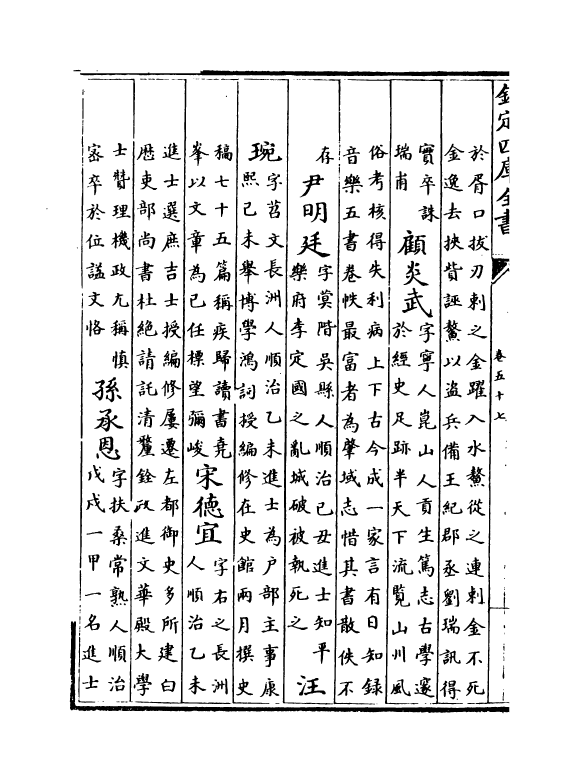 欽定四庫全書
卷五十七
於胥口拔刃刺之金躍入水鰲從之連刺金不死
金逸去挾貲誣鰲以盜兵備王紀郡丞劉瑞訊得
實卒誅
瑞甫
顧炎武
字寧人崑山人貢生篤志古學邃
於經史足跡半天下流覽山川風
俗考核得失利病上下古今成一家言有日知錄
音樂五書卷帙最富者為肇域志惜其書散佚不
存
尹明廷
字蓂階吳縣人順治己丑進士知平
樂府李定國之亂城破被執死之
汪
琬
字苕文長洲人順治乙未進士為户部主事康
熙己未舉博學鴻詞授編修在史館兩月撰史
稿七十五篇稱疾歸讀書堯
峯以文章為已任標望彌峻
宋德宜
字右之長洲
人順治乙未
進士選庶吉士授編修屢遷左都御史多所建白
歷吏部尚書杜絶請託清釐銓政進文華殿大學
士贊理機政尤稱慎
密卒於位諡文恪
孫承恩
字扶桑常熟人順治
戊戌一甲一名進士